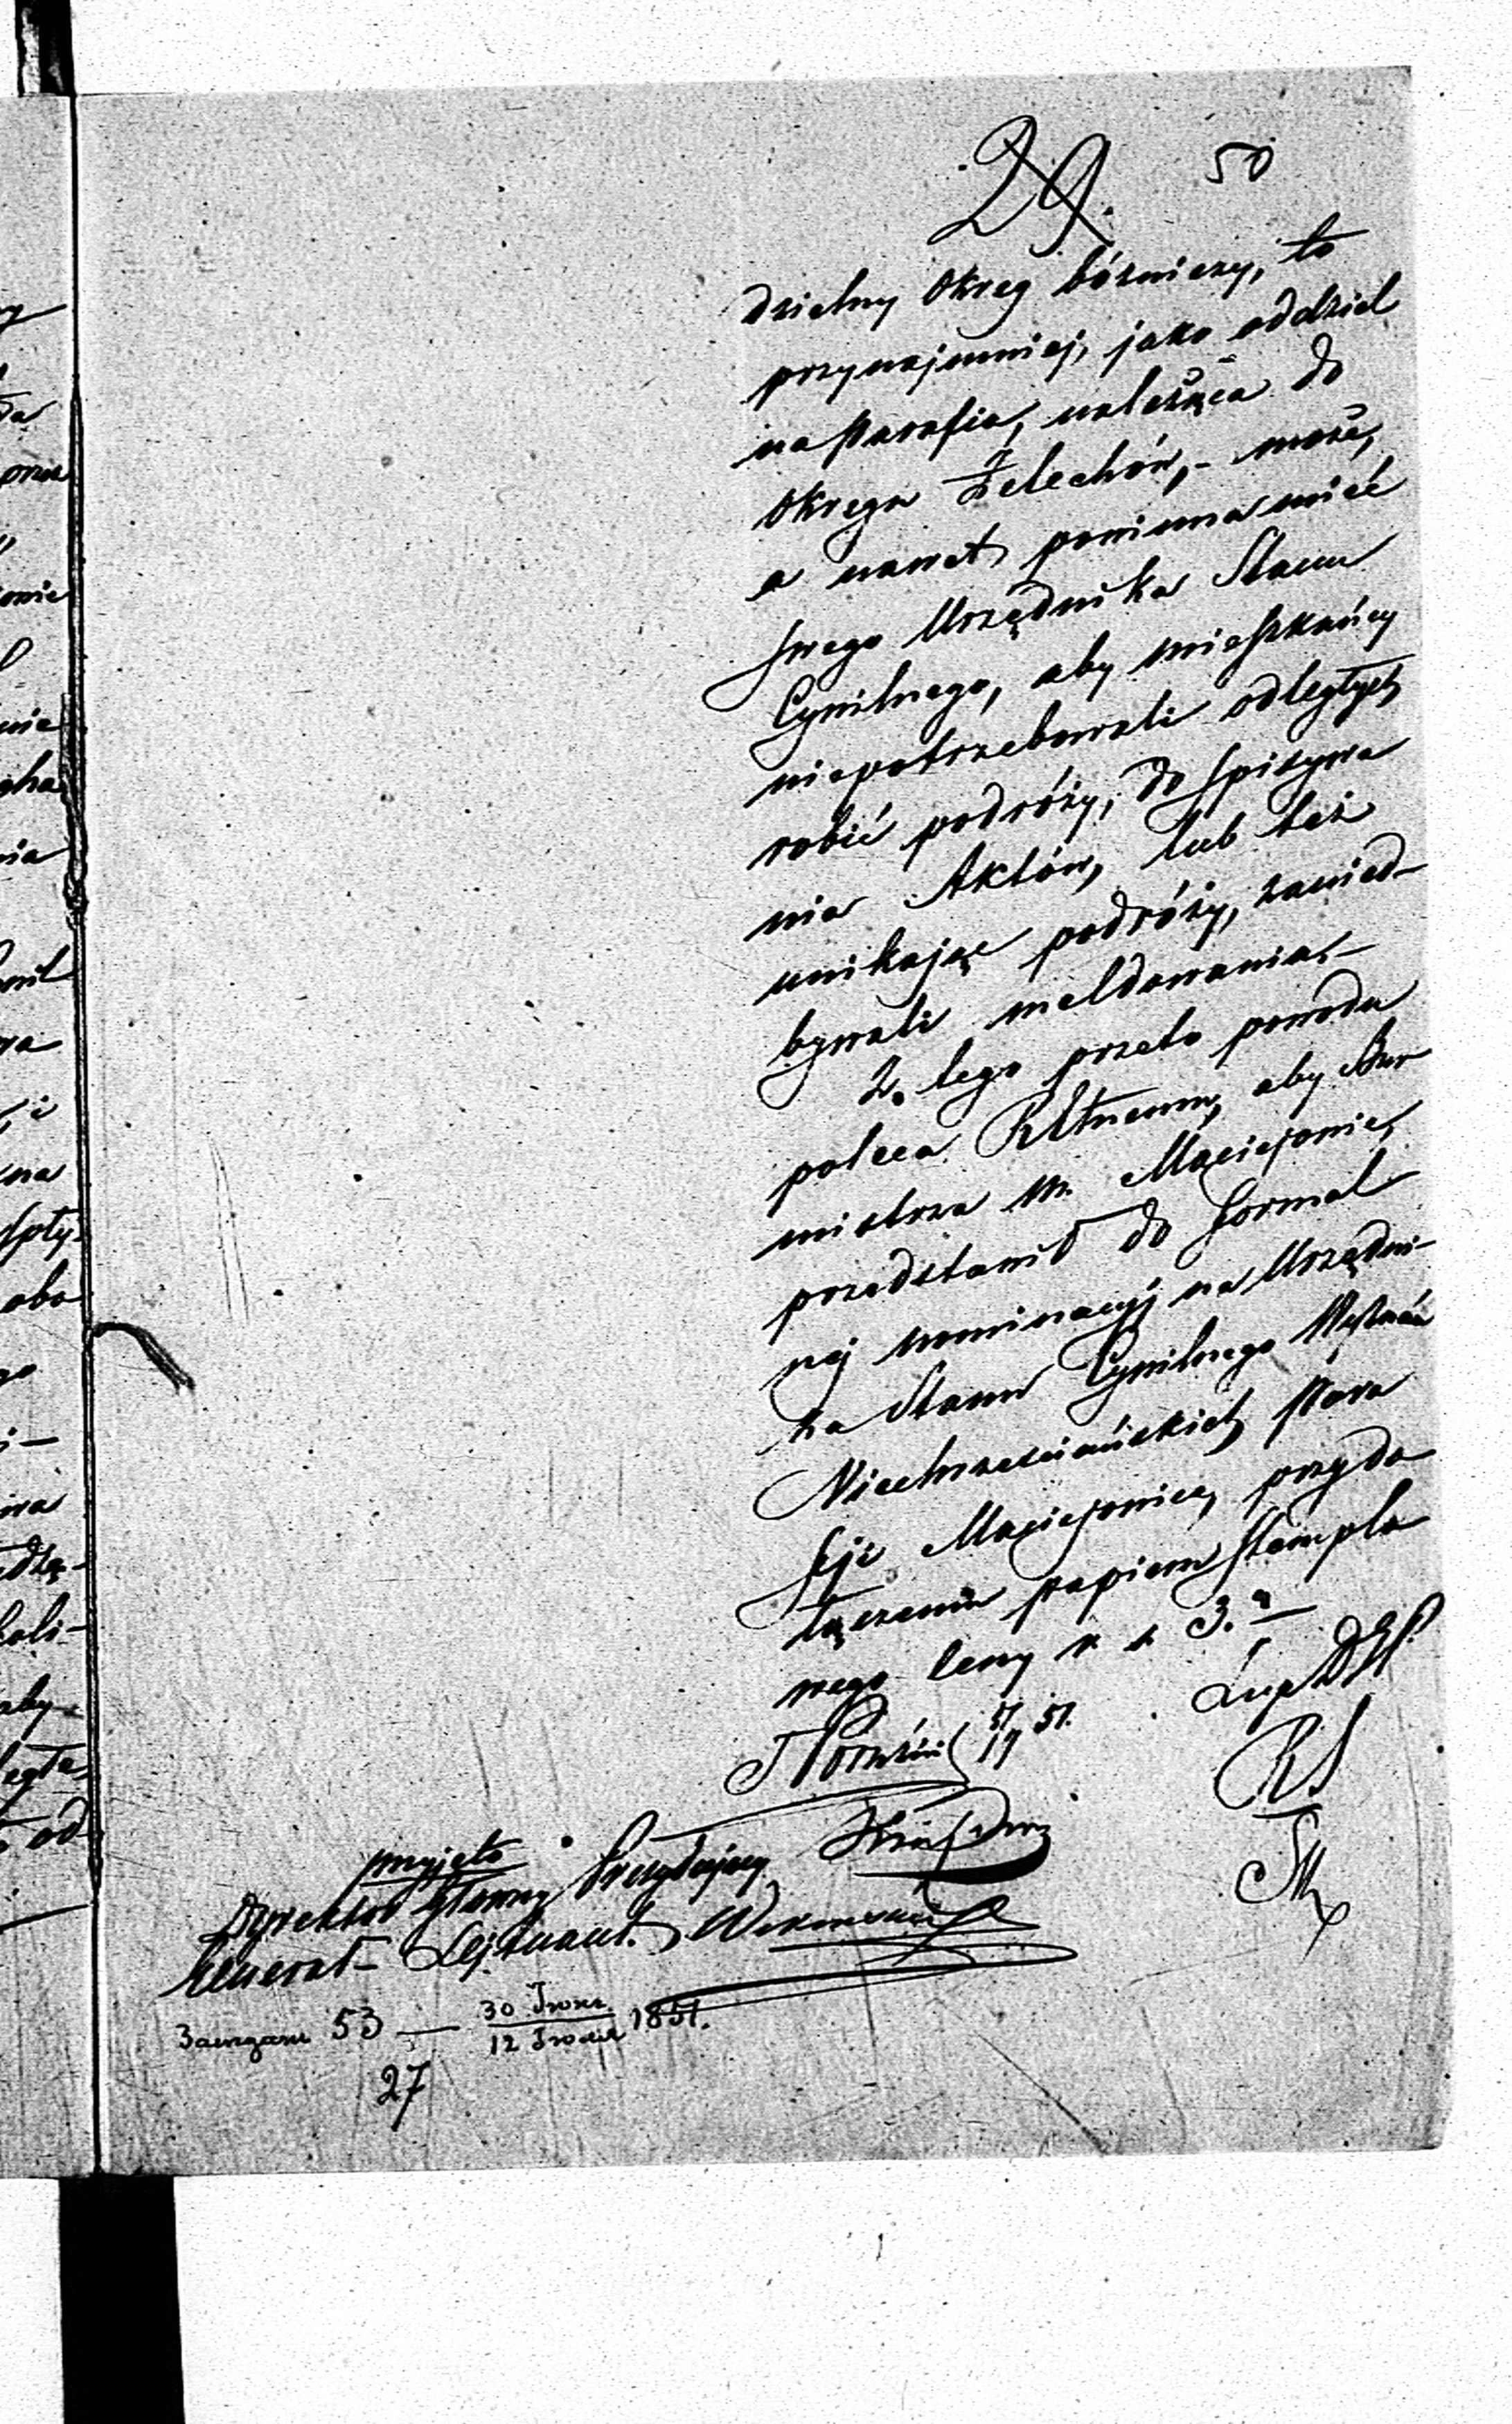 29. 50
dzielny Okręg bóżniczy, to
przynajmniej, jako oddziel
na Parafia, należąca do
Okręgu Żelechów, - może,
a nawet powinna mieć
swego Urzędnika Stanu
Cywilnego, aby mieszkańcy
niepotrzebowali odległych
robić podróży, do spisywa
nia Aktów, lub też
unikając podróży, zanied-
bywali meldowania. -
Z tego przeto powodu
poleca RGtnemu, aby Bur
mistrza M. Maciejowic,
przedstawił do formal
nej nominacyj na Urzędni-
ka Stanu Cywilnego Wyznań
Niechrześciańskich Para
fji Maciejowice, przy do
łączeniu papieru stempla
wego ceny r s 3.
przyjęto
Dyrektor Główny Prezydujący
Generał-Lejtnant.
53 — 30 / 12 1851.
27
ny
prze
wnie
nia
wa
na
abo
go
wa
aby
od